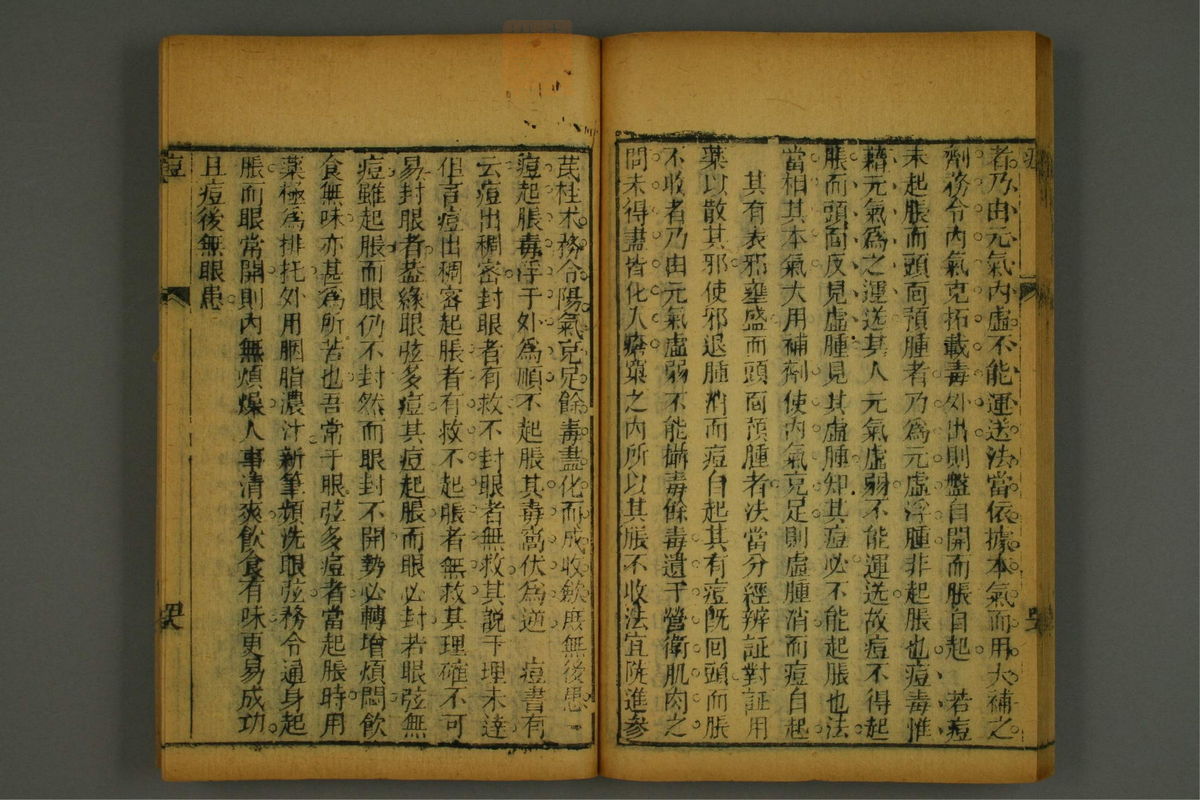 者乃由元氣內虛不能運送法當依據本氣而用大補之
劑務令內氣克拓載毒外出則盤自開而脹自起　若痘
未起脹而頭面預腫者乃為元虛浮腫非起脹也痘毒惟
藉元氣為之運送其人元氣虛弱不能運送故痘不得起
脹而頭面反見虛腫見其虛腫知其痘必不能起脹也法
當相其本氣大用補劑使內氣充足則虛腫消而痘自起
其有表邪壅盛而頭面預腫者法當分經辨証對証用
藥以散其邪使邪退腫消而痘自起其有痘既回頭而脹
不收者乃由元氣虛弱不能攝毒餘毒遺于營衛肌肉之
間未得盡皆化入瘡窠之內所以其脹不收法宜陡進參
芪桂朮務令陽氣充足餘毒盡化而成收斂庶無後患
痘起脹毒浮于外為順不起脹其毒蒿伏為逆　痘書有
云痘出稠密封眼者有救不封眼者無救其說于理未達
但言痘出稠密起脹者有救不起脹者無救其理確不可
易封眼者葢緣眼弦多痘其痘起脹而眼必封若眼弦無
痘雖起脹而眼仍不封然而眼封不開勢必轉增煩悶飲
食無味亦甚為所苦也吾常于眼弦多痘者當起脹時用
藥極為排托外用胭脂濃汁新筆頻洗眼弦務令通身起
脹而眼常開則內無煩燥人事清爽飲食有味更易成功
且痘後無眼患
痘